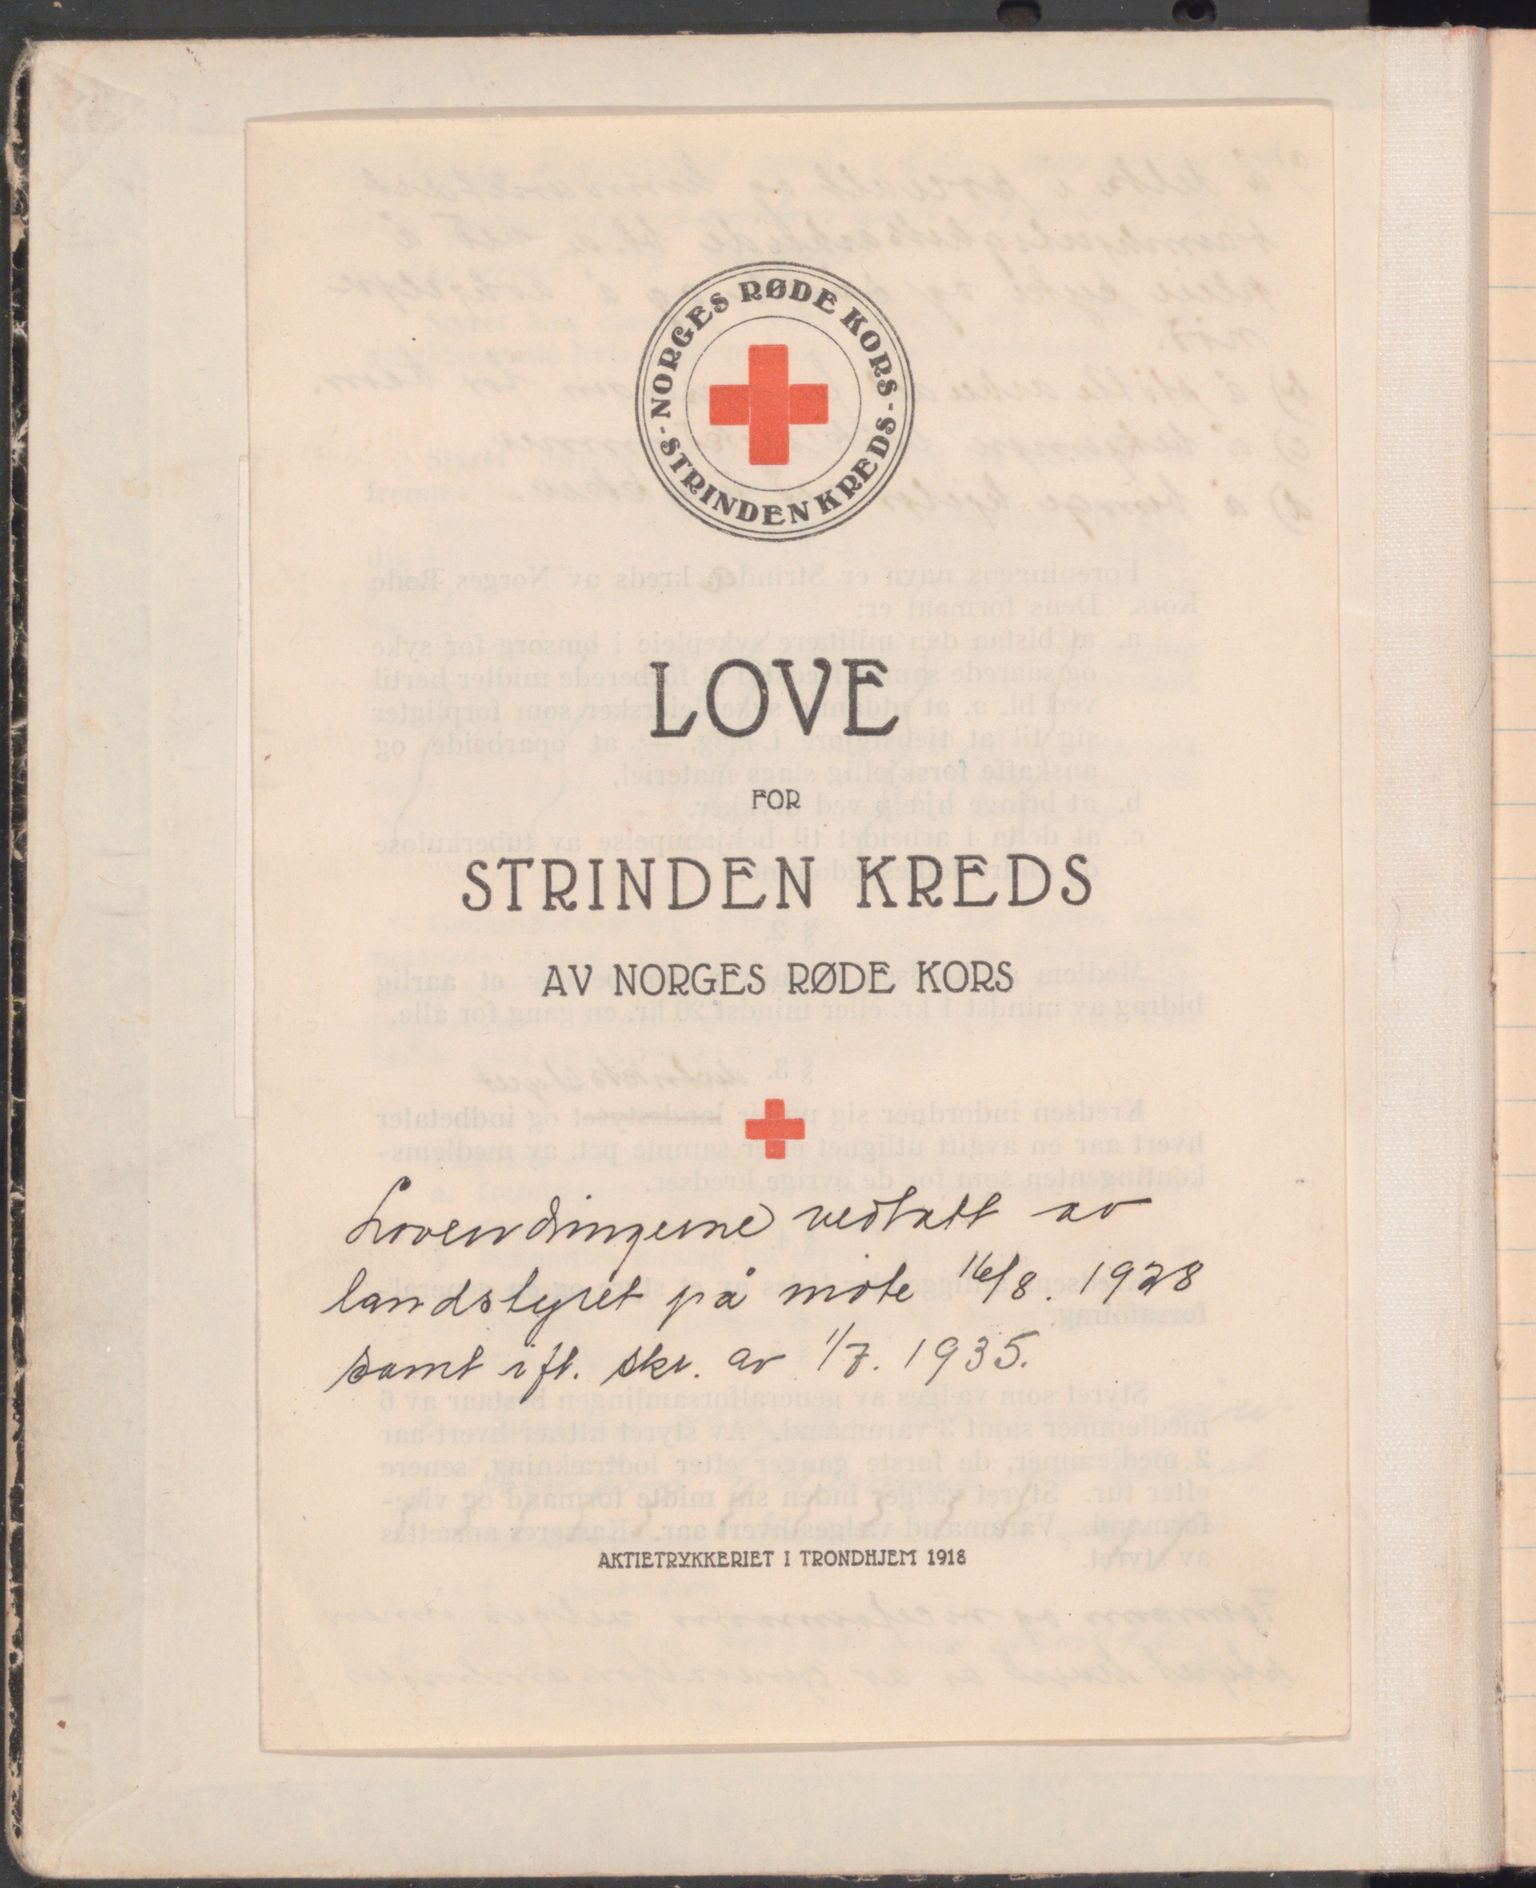 NORGES RØDE KORS
- STRINDEN KREDS -
LOVE
FOR
STRINDEN KREDS
AV NORGES RØDE KORS
Lovendringerne vedtatt av
landstyret på møte 16/8. 1928
samt ifl. skr. av 1/7. 1935.
AKTIETRYKKERIET I TRONDHJEM 1918